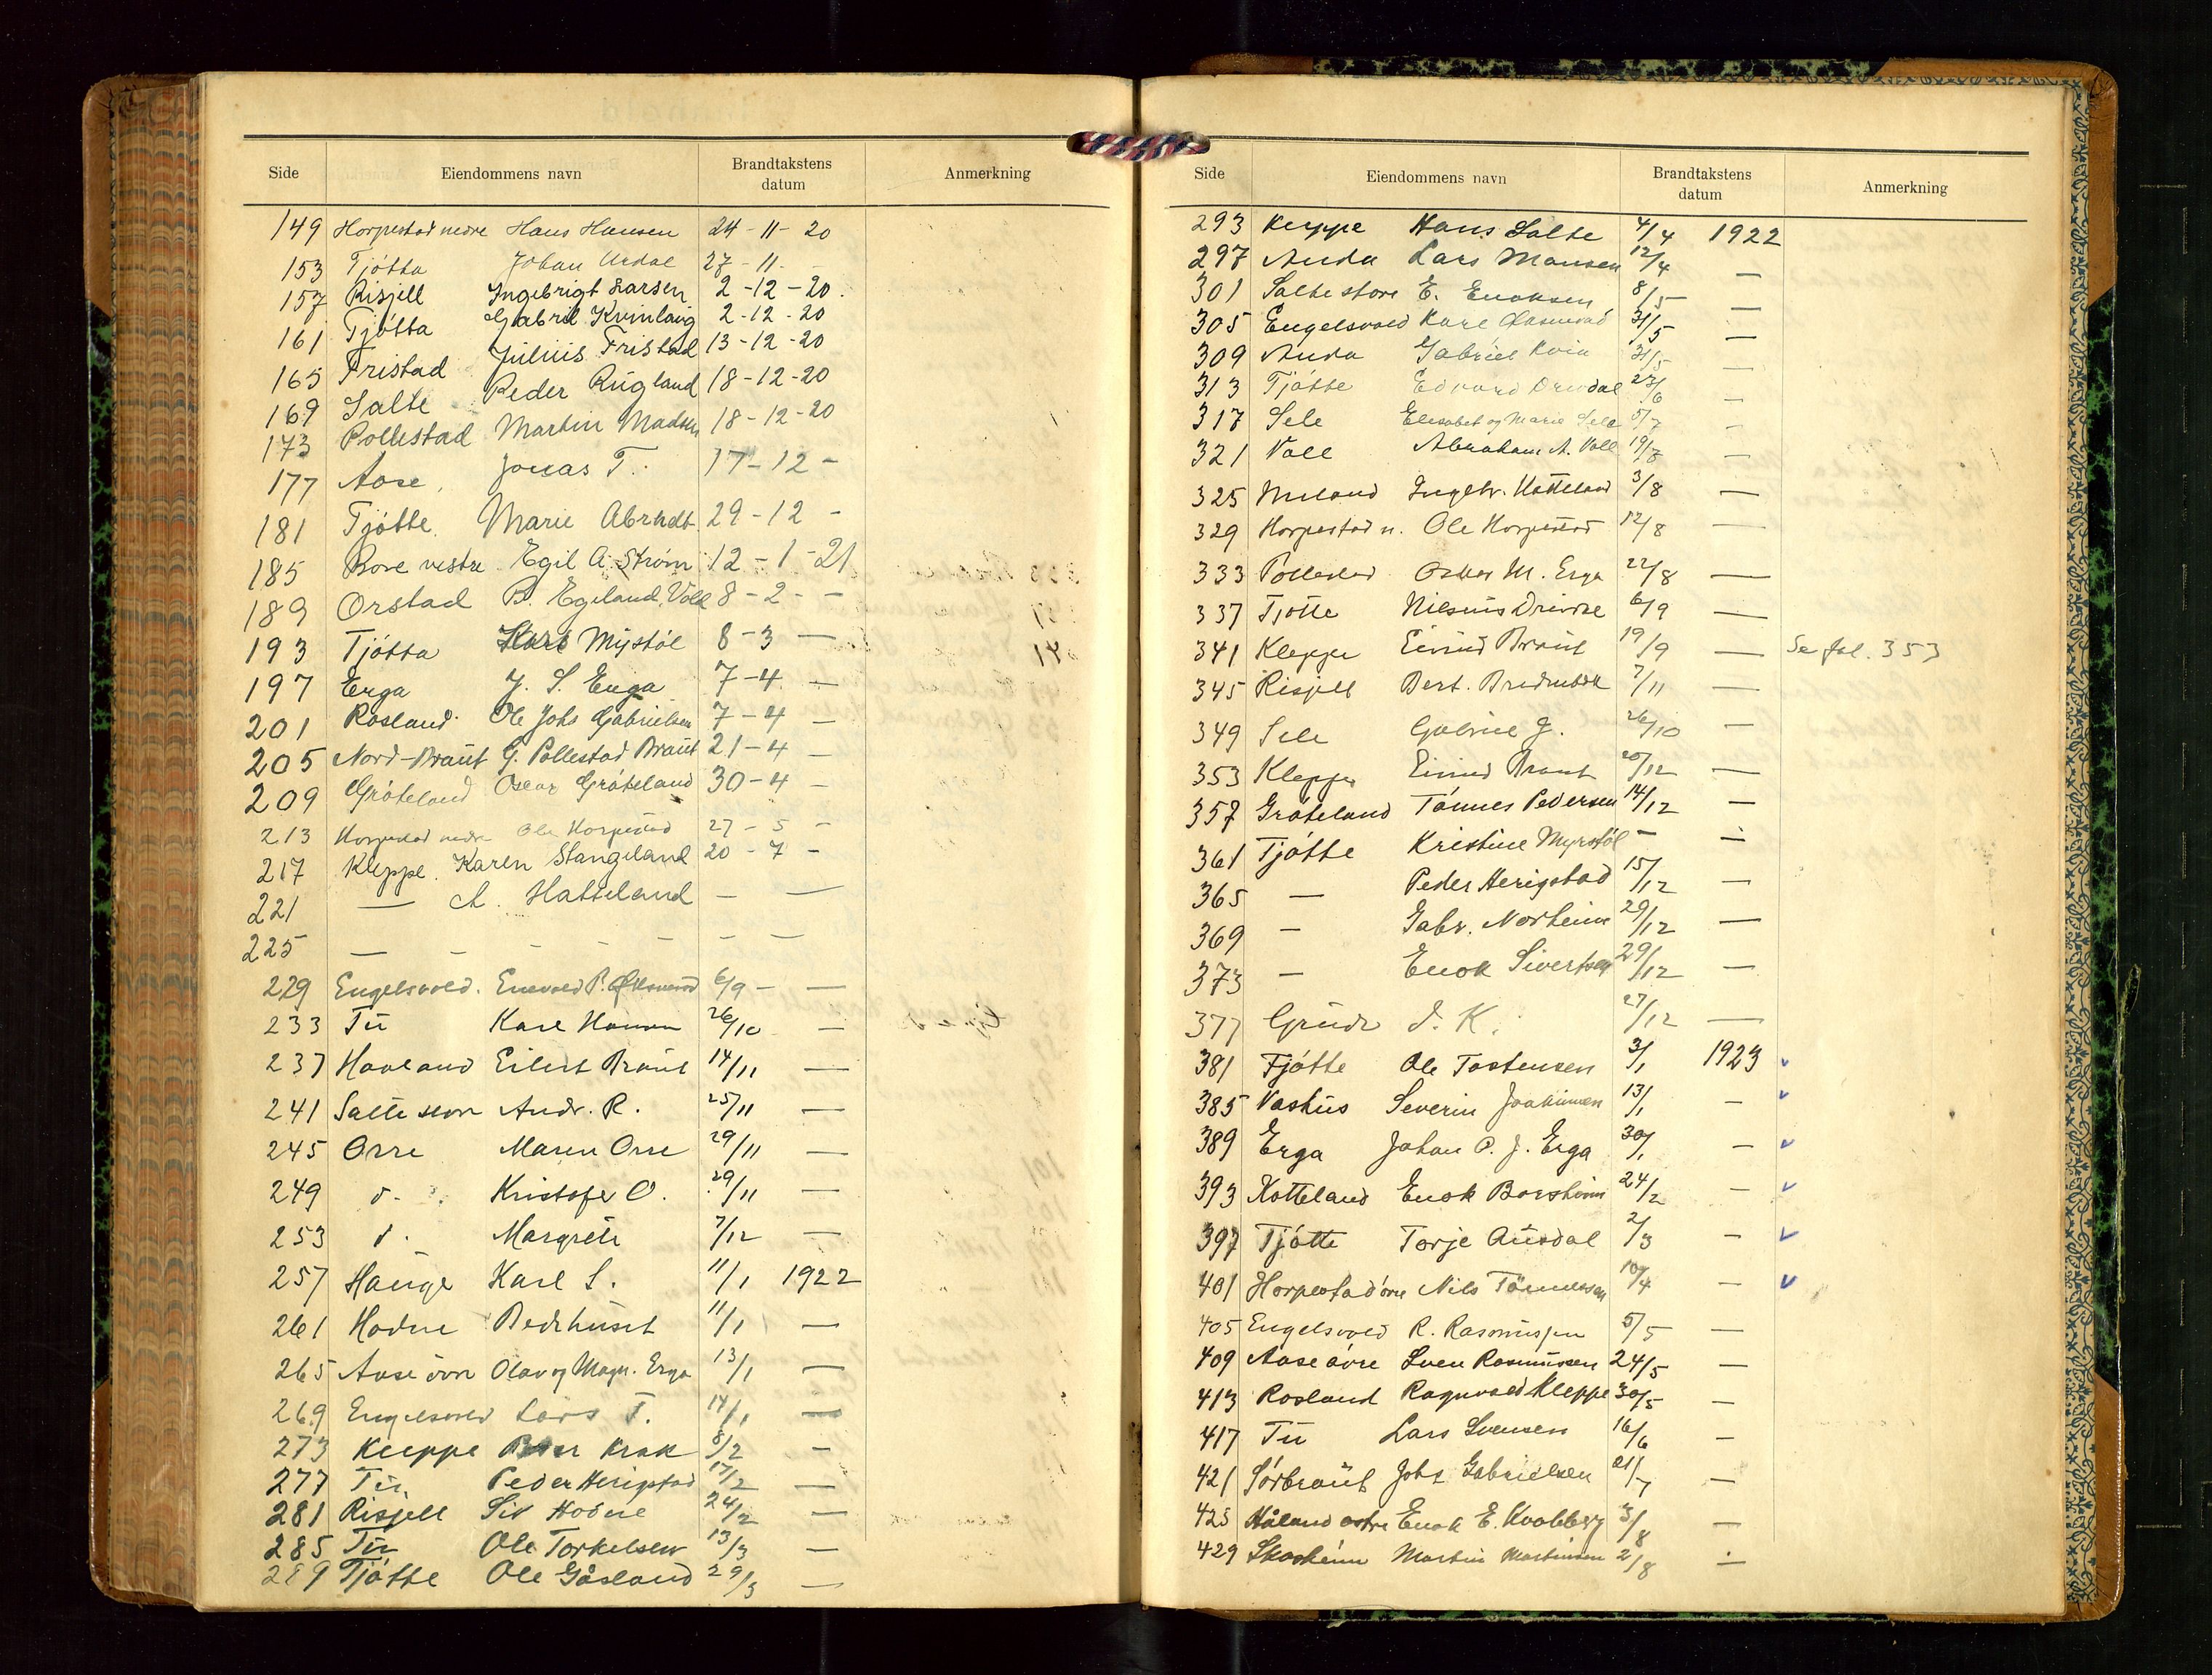 Side Eiendommens navn Brandtakstens datum Anmerkning
149 Horpestad nedre Hans Hansen 24-11-20
153 Tjótta Johan Urdal 27-11-
157 Risjell Ingebrigt Larsen 2-12-20.
161 Tjótta Gabriel Kvinlaug 2-12-20
165 Fristad Julius Fristad 13-12-20
169 Salte Peder Rugland 18-12-20
173 Pollestad Martin Madsen 18-12-20
177 Aase, Jonas T. 17-12-
181 Tjótte. Marie 29-12-
185 Bore vestre Egil A. Strøm 12-1-21
189 Orstad B. Egeland, Voll 8-2--
193 Tjótta Kari Mystól 8-3 —
197 Erga J. S. Erga 7-4. —
201 Rosland Ole Johs Gabrielsen 7-4 —
205 Nord-Braut G. Pollestad Braut 21-4 —
209 Gróteland Oscar Gróteland 30-4 —
213 Horpestad nedre Ole Horpestad 27-5-
217 Kleppe. Karen Stangeland 20-7-
221 — A. Hatteland — —
225 — — — — — — — —
229 Engelsvold. Enevald P. 6/9 - —
233 Tu Karl Hansen 26/10 —
237 Haaland Eilert Braut 14/11 —
241 Salte store Andr. R. 25/11 —
245 Orre Maren Orre 29/11 —
249 d. Kristofe O. 29/11 —
253 d. Margrete 7/12 —
257 Hauge Karl S. 11/1 1922
261 Hodne Bedehuset 11/1 —
265 Aase óvre Olav og Magn. Erga 13/1 —
269 Engelsvold Lars T. 14/1 —
273 Kleppe Peder Krak 8/2 —
277 Tu Peder Herigstad 17/2 —
281 Risjell Siv Hodne 24/2 —
285 Tu Ole Torkelsen 13/3 —
289 Tjótte Ole Gåsland 29/3 —
Side Eiendommens navn Brandtakstens datum Anmerkning
293 Kleppe Hans Salte 4/4 1922
297 Anda Lars Monsen 12/4 —
301 Salte store E. Enoksen 8/5 —
305 Engelsvold Karl 31/5 —
309 Anda Gabriel Kvia 31/5 —
313 Tjótte Edvard Orrdal 23/6 —
317 Sele Elisabet og Marie Sele 5/7 —
321 Voll Abraham A. Voll 19/7 —
325 Ingebr. Hatteland 3/8 —
329 Horpestad n. Ole Horpestad 12/8 —
333 Pollestad Oskar M. Erga 22/8 —
337 Tjotte Nilsius 6/9 —
341 Kleppe Eivind Braut 19/9 — Se fol. 353
345 Risjell Bert. 7/11 —
349 Sele Gabriel J. 26/10 —
353 Kleppe Eivind Braut 20/12 —
357 Gróteland Tónnes Pedersen 14/12 —
361 Tjótte Kristine Myrstól - —
365 — Peder Herigstad 15/12 —
369 - Gabr. Norheim 29/12 —
373 - Enok Sivertsen 29/12 —
377 Grude I. K. 27/12 —
381 Tjótte Ole Tostensen 3/1 1923 v
385 Vashus Severin Joakimsen 13/1 — v
389 Erga Johan P. J. Erga 30/1 — v
393 Kotteland Enok Borsheim 24/2 — v
397 Tjótte Torje Ausdal 2/3 — v
401 Horpestad óvre Nils Tönnessen 10/4 — v
405 Engelsvold R. Rasmussen 5/5 —
409 Aase óvre Sven Rasmussen 24/5 —
413 Rosland Ragnvald Kleppe 30/5 —
417 Tu Lars Svensen 16/6 —
421 Sórbraut Johs Gabrielsen 21/7 —
425 Håland ostre Enok E. 3/8 —
429 Skasheim Martin Martinsen 2/8 —